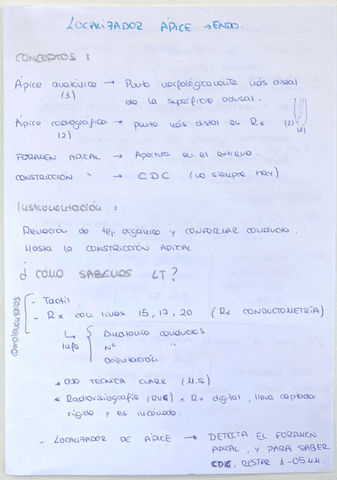 LOCALIZADOR ÁPICE → ENDO.
CONCEPTOS :
Ápice anatómico → Punto morfológicamente más distal
(1)
de la superficie oclusal.
Ápice radiográfico → punto más distal en Rx (2)
(2)
(1)
FORAMEN APICAL → Apertura en el extremo.
CONSTRICCIÓN " → CDC (no siempre hay)
Instrumentación :
Remoción de tej. orgánico y CONFORMAR conducto.
Hasta la CONSTRICCIÓN APICAL
¿ CÓMO SABEMOS LT ?
- Tactil
- Rx con limas 15, 17, 20 (Rx CONDUCTOMETRÍA)
↳ Info
Anatomía conductos
Nº "
Orientación
* OJO TECNICA CLARK (M.S)
* Radiovisiografía (RVG) = Rx digital, lleva captador
rígido y es incómodo.
- LOCALIZADOR DE ÁPICE → DETECTA EL FORAMEN
APICAL, Y PARA SABER
CDC, RESTAR 1-05 mm.